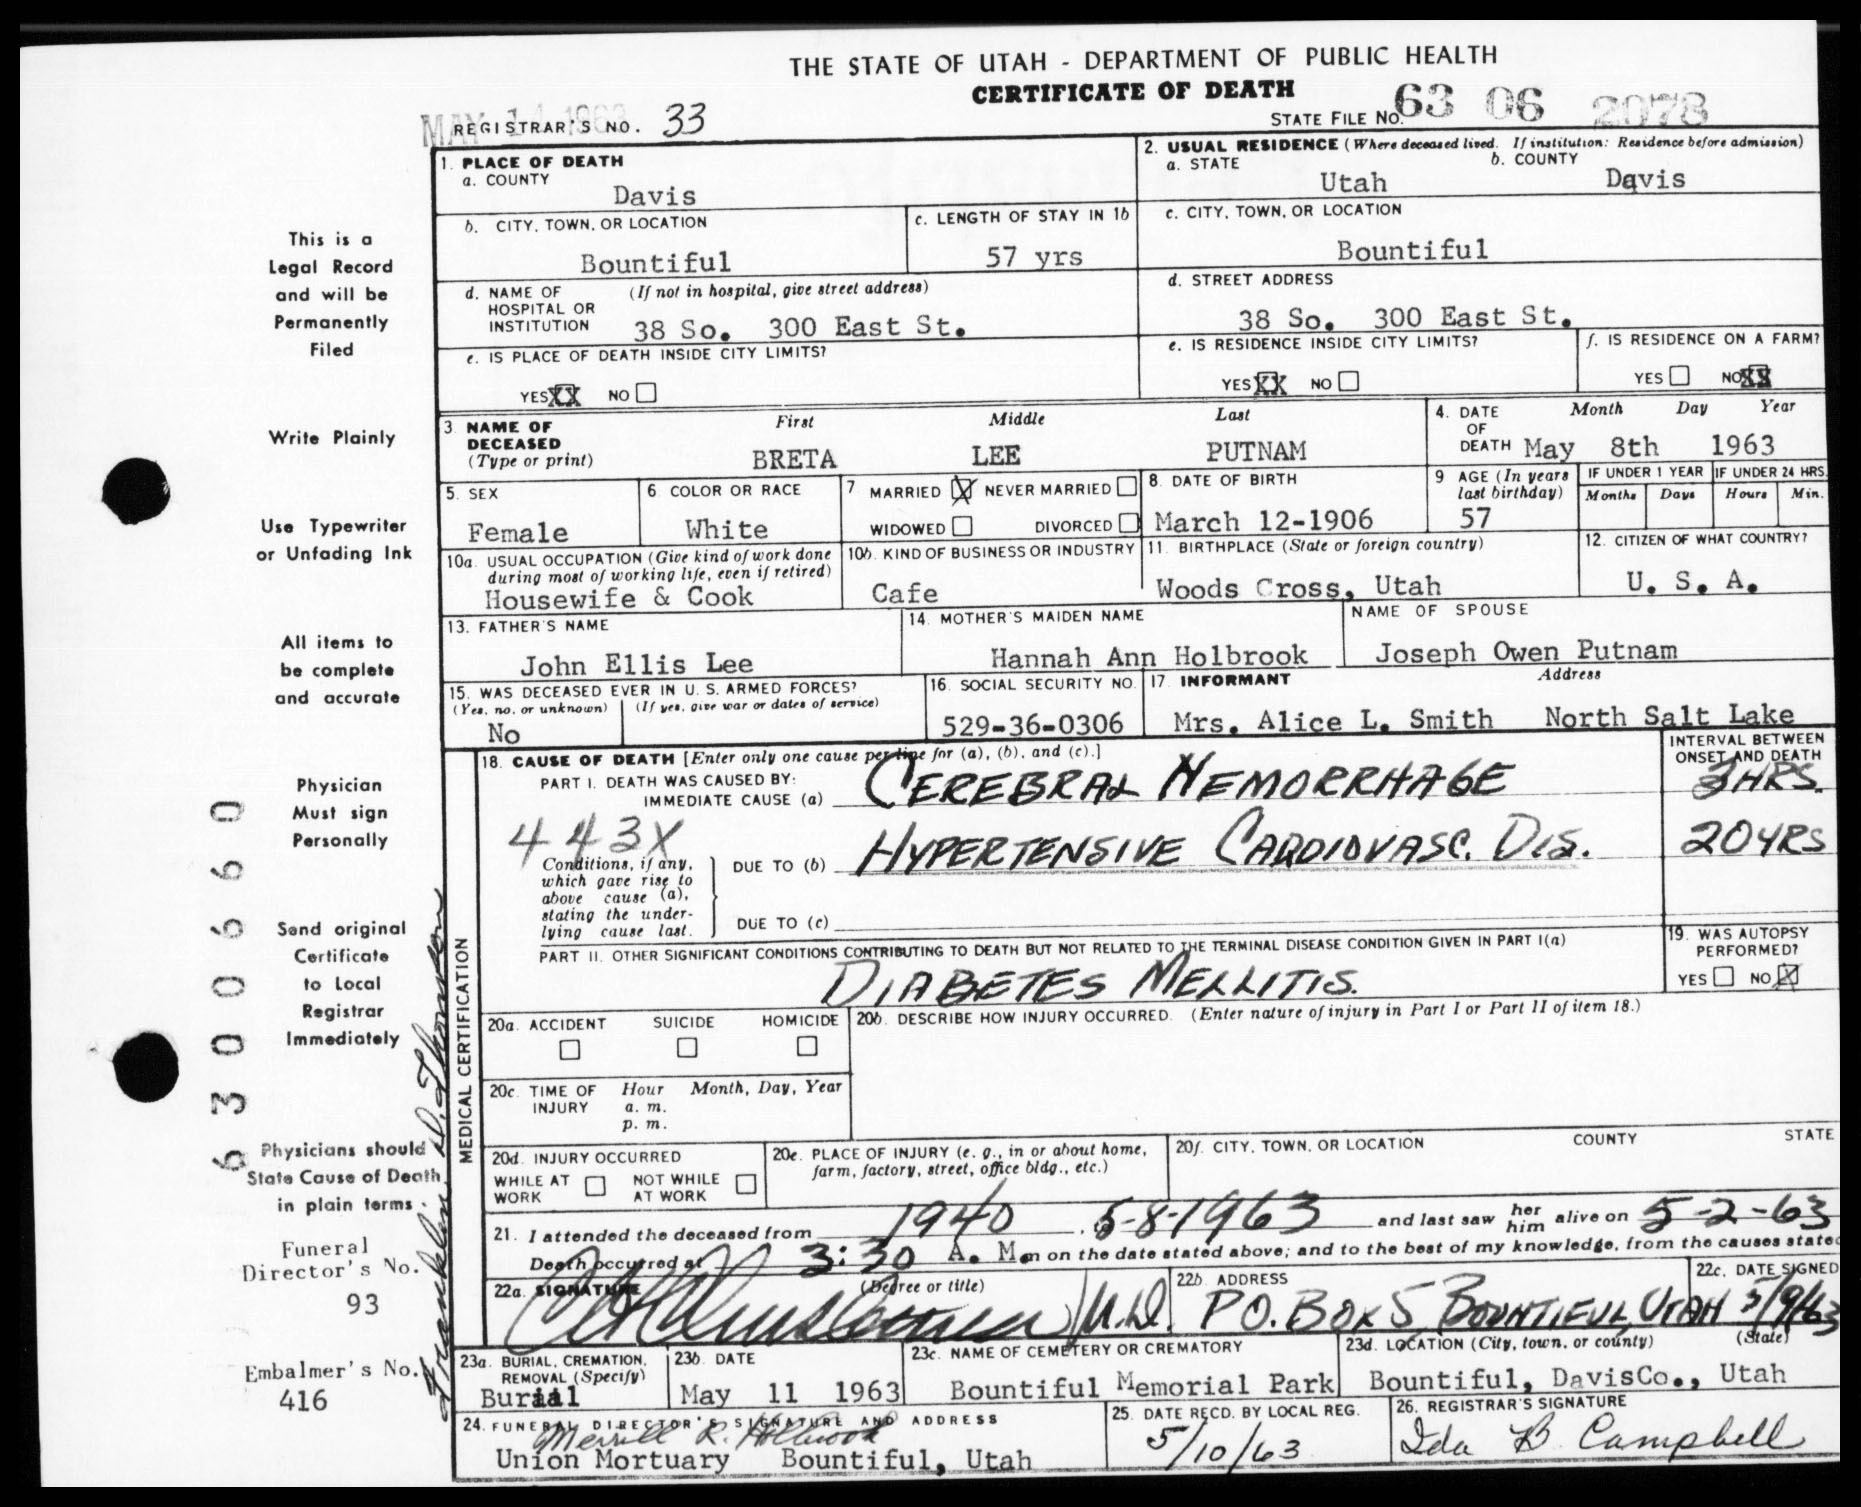 THE STATE OF UTAH - DEPARTMENT OF PUBLIC HEALTH
CERTIFICATE OF DEATH
MAY 14 1963
REGISTRAR'S NO. 33
STATE FILE NO. 63 06 2078
1. PLACE OF DEATH
a. COUNTY
Davis
2. USUAL RESIDENCE (Where deceased lived. If institution: Residence before admission)
a. STATE b. COUNTY
Utah Davis
b. CITY, TOWN, OR LOCATION
Bountiful
c. LENGTH OF STAY IN 1b
57 yrs
c. CITY, TOWN, OR LOCATION
Bountiful
d. NAME OF HOSPITAL OR INSTITUTION (If not in hospital, give street address)
38 So. 300 East St.
d. STREET ADDRESS
38 So. 300 East St.
e. IS PLACE OF DEATH INSIDE CITY LIMITS?
YES XX NO
e. IS RESIDENCE INSIDE CITY LIMITS?
YES XX NO
f. IS RESIDENCE ON A FARM?
YES NO XX
3. NAME OF DECEASED (Type or print)
First Middle Last
BRETA LEE PUTNAM
4. DATE OF DEATH
Month Day Year
May 8th 1963
5. SEX
Female
6. COLOR OR RACE
White
7 MARRIED X NEVER MARRIED
WIDOWED DIVORCED
8. DATE OF BIRTH
March 12-1906
9 AGE (In years last birthday)
57
IF UNDER 1 YEAR
Months Days
IF UNDER 24 HRS.
Hours Min.
10a. USUAL OCCUPATION (Give kind of work done during most of working life, even if retired)
Housewife & Cook
10b. KIND OF BUSINESS OR INDUSTRY
Cafe
11. BIRTHPLACE (State or foreign country)
Woods Cross, Utah
12. CITIZEN OF WHAT COUNTRY?
U. S. A.
13. FATHER'S NAME
John Ellis Lee
14. MOTHER'S MAIDEN NAME
Hannah Ann Holbrook
NAME OF SPOUSE
Joseph Owen Putnam
15. WAS DECEASED EVER IN U. S. ARMED FORCES?
(Yes, no, or unknown) (If yes, give war or dates of service)
No
16. SOCIAL SECURITY NO.
529-36-0306
17. INFORMANT Address
Mrs. Alice L. Smith North Salt Lake
18. CAUSE OF DEATH [Enter only one cause per line for (a), (b), and (c).]
INTERVAL BETWEEN ONSET AND DEATH
PART I. DEATH WAS CAUSED BY:
IMMEDIATE CAUSE (a) CEREBRAL HEMORRHAGE 3 HRS.
443X
Conditions, if any, which gave rise to above cause (a), stating the underlying cause last.
DUE TO (b) HYPERTENSIVE CARDIOVASC. DIS. 20 YRS
DUE TO (c)
PART II. OTHER SIGNIFICANT CONDITIONS CONTRIBUTING TO DEATH BUT NOT RELATED TO THE TERMINAL DISEASE CONDITION GIVEN IN PART I(a)
DIABETES MELLITIS.
19. WAS AUTOPSY PERFORMED?
YES NO X
MEDICAL CERTIFICATION
20a. ACCIDENT SUICIDE HOMICIDE
20b. DESCRIBE HOW INJURY OCCURRED. (Enter nature of injury in Part I or Part II of item 18.)
20c. TIME OF INJURY Hour Month, Day, Year
a. m.
p. m.
20d. INJURY OCCURRED
WHILE AT WORK NOT WHILE AT WORK
20e. PLACE OF INJURY (e. g., in or about home, farm, factory, street, office bldg., etc.)
20f. CITY, TOWN, OR LOCATION COUNTY STATE
21. I attended the deceased from 1940, 5-8-1963 and last saw her him alive on 5-2-63
Death occurred at 3:30 A. M. m on the date stated above; and to the best of my knowledge, from the causes stated
22a. SIGNATURE (Degree or title)
M.D.
22b. ADDRESS
P.O. BOX 5 BOUNTIFUL, UTAH
22c. DATE SIGNED
5/9/63
23a. BURIAL, CREMATION, REMOVAL (Specify)
Burial
23b. DATE
May 11 1963
23c. NAME OF CEMETERY OR CREMATORY
Bountiful Memorial Park
23d. LOCATION (City, town, or county) (State)
Bountiful, DavisCo., Utah
24. FUNERAL DIRECTOR'S SIGNATURE AND ADDRESS
Merrill R. Holbrook
Union Mortuary Bountiful, Utah
25. DATE RECD. BY LOCAL REG.
5/10/63
26. REGISTRAR'S SIGNATURE
Ida B Campbell
This is a
Legal Record
and will be
Permanently
Filed
Write Plainly
Use Typewriter
or Unfading Ink
All items to
be complete
and accurate
Physician
Must sign
Personally
Send original
Certificate
to Local
Registrar
Immediately
Physicians should
State Cause of Death
in plain terms.
Funeral
Director's No.
93
Embalmer's No.
416
6300660
Franklin D. Thomson